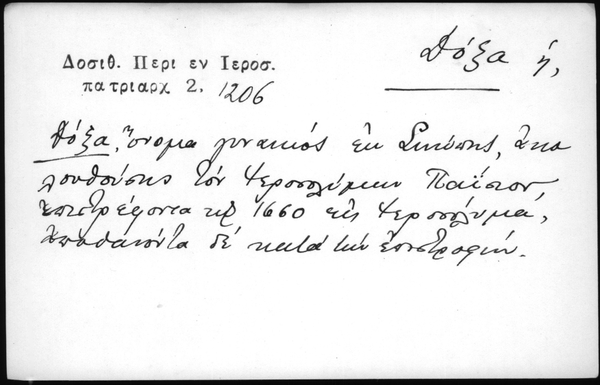 Δόξα ἡ,
Δοσιθ. Περι εν Ιεροσ.
πατριαρχ 2, 1206
Δόξα, ὄνομα γυναικός ἐκ Σινώπης, ἀκο
λουθούσης τὸν Ἱεροσολύμων Παΐσιον
ἐπιστρέφοντα τῷ 1660 εἰς Ἱεροσόλυμα,
ἀποθανόντα δέ κατά τὴν ἐπιστροφήν.